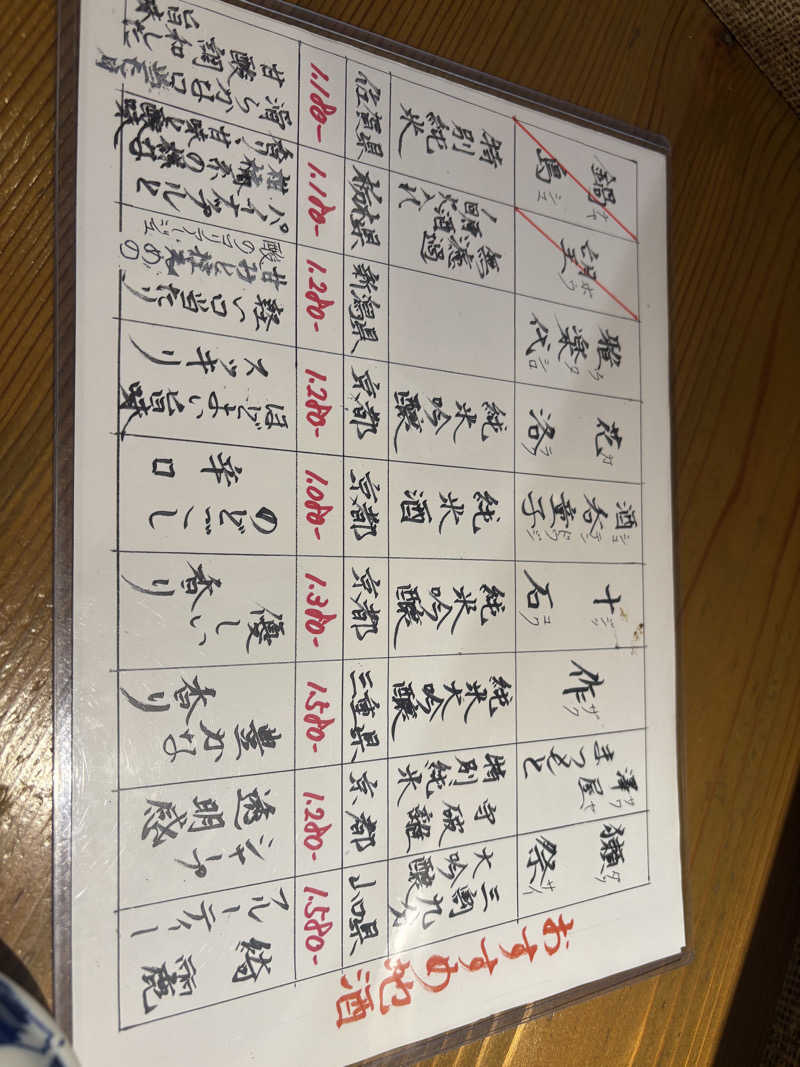 おすすめ地酒
獺
祭
三割九分
大吟醸
山口県
1.580-
綺麗
フルーティー
澤屋
まつもと
守破離
特別純米
京都
1.280-
シャープ
透明感
作
ザク
純米大吟醸
三重県
1.580-
豊かな
香り
十石
純米吟醸
京都
1.380-
優しい
香り
酒呑
童子
純米酒
京都
1.080-
のどごし
辛口
花洛
純米吟醸
京都
1.280-
ほどよい旨味
スッキリ
雅楽代
新潟県
1.280-
軽い口当たり
無濾過
原酒
栃木県
1.180-
鍋島
特別純米
佐賀県
1.180-
滑らかな口当たり
旨味